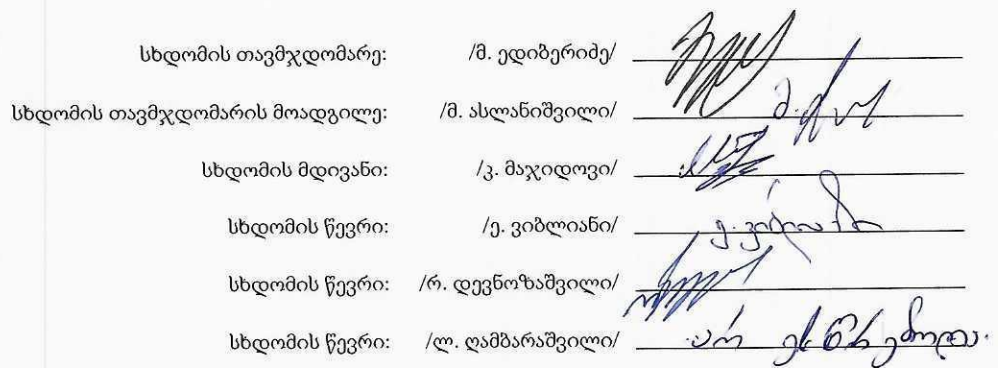 სხდომის თავმჯდომარე: /მ. ედიბერიძე/
სხდომის თავმჯდომარის მოადგილე: /მ. ასლანიშვილი/
სხდომის მდივანი: /კ. მაჯიდოვი/
სხდომის წევრი: /ე. ვიბლიანი/ ე. ვიბლიანი
სხდომის წევრი: /რ. დევნოზაშვილი/
სხდომის წევრი: /ლ. ღამბარაშვილი/ არ ესწრებოდა.